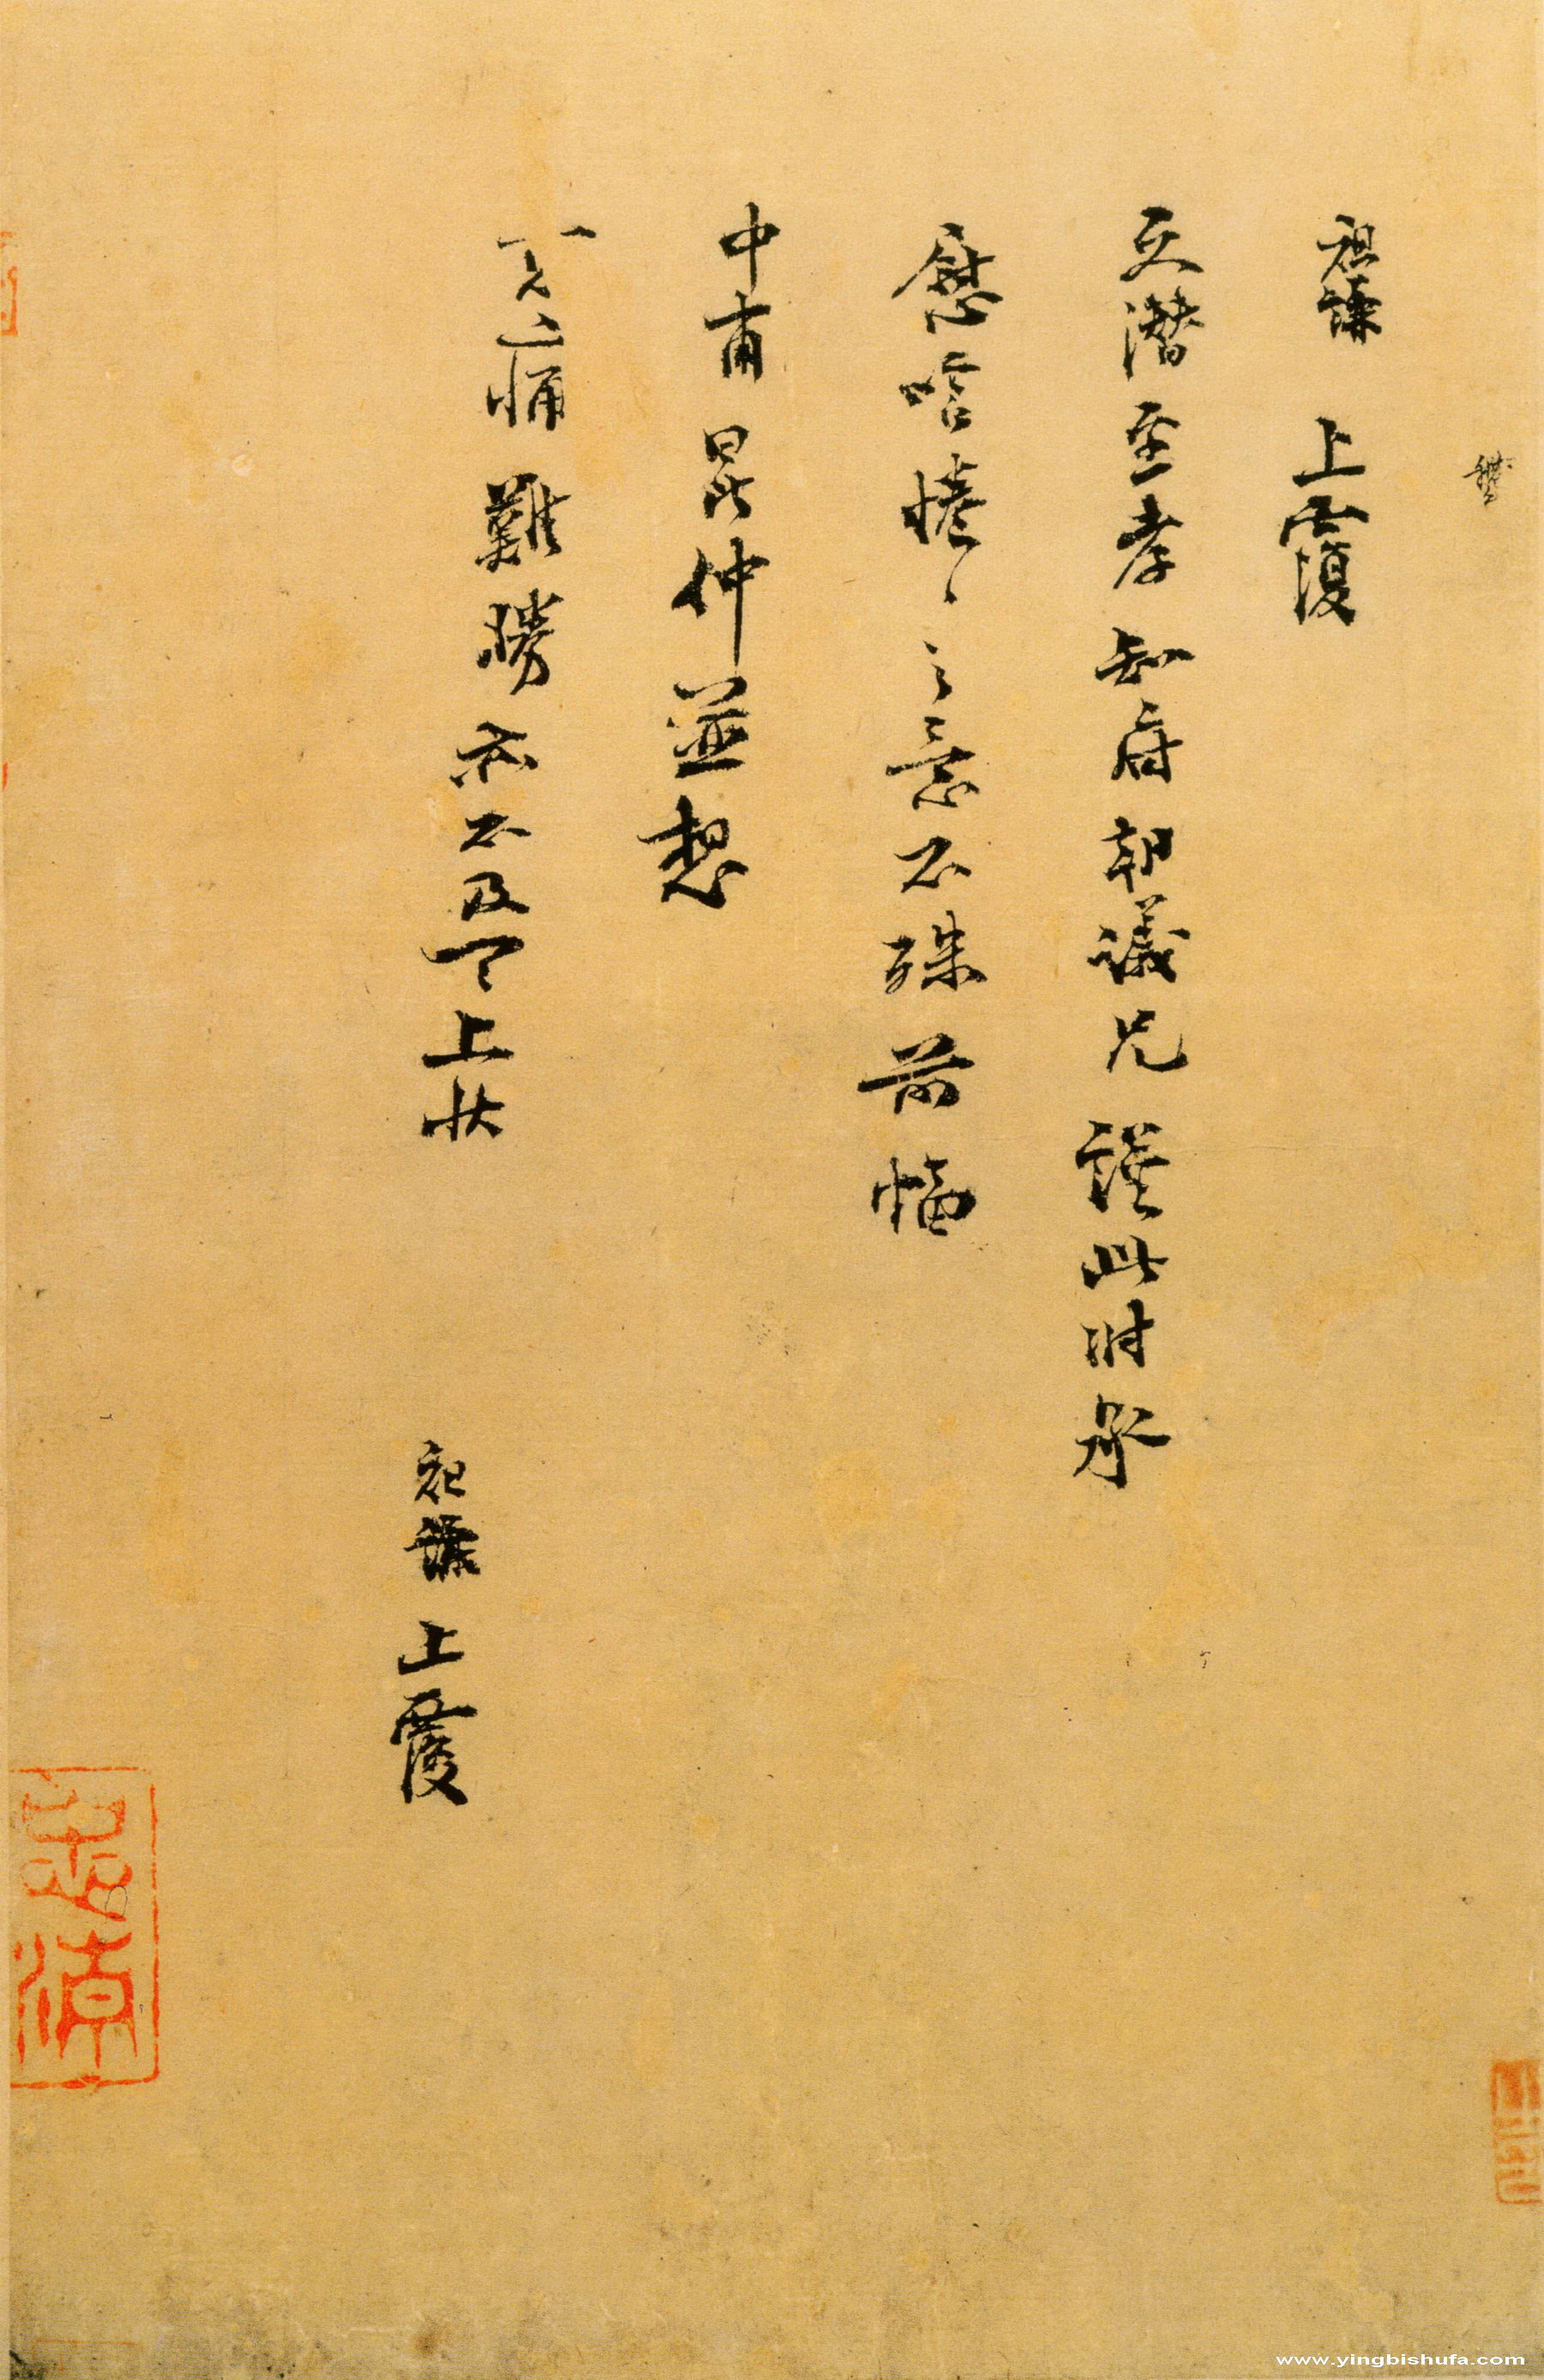 祖謙 上覆
文潛至孝知府朝議兄 謹此附承
慰唁惓惓之意不殊前幅
中甫昆仲並想
哀痛難勝亦不及下上狀
祖謙上覆
www.yingbishufa.com